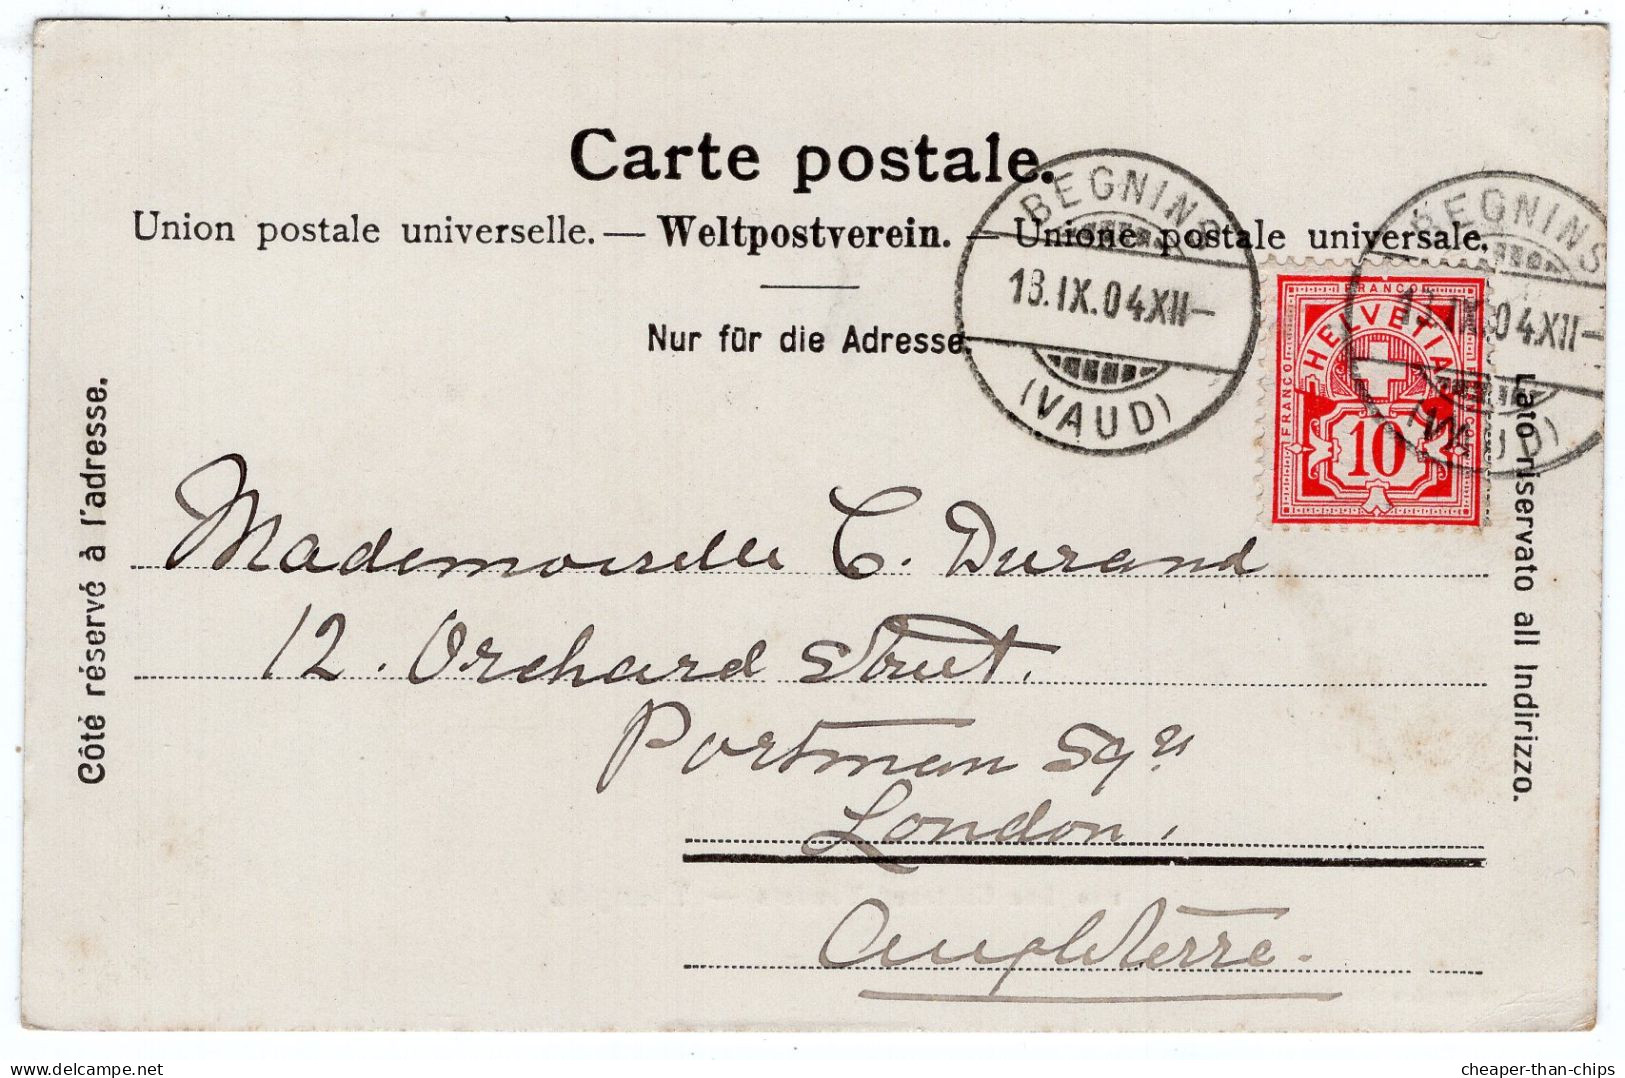 Carte postale.
Union postale universelle. — Weltpostverein. — Unione postale universale.
Nur für die Adresse.
BEGNINS
13.IX.04XII–
(VAUD)
BEGNINS
13.IX.04XII–
(VAUD)
FRANCO
FRANCO
FRANCO
HELVETIA
10
Côté réservé à l'adresse.
Lato riservato all Indirizzo.
Mademoiselle C. Durand
12. Orchard Street.
Portman Sqre
London.
Angleterre.
cheaper-than-chips
delcampe.net